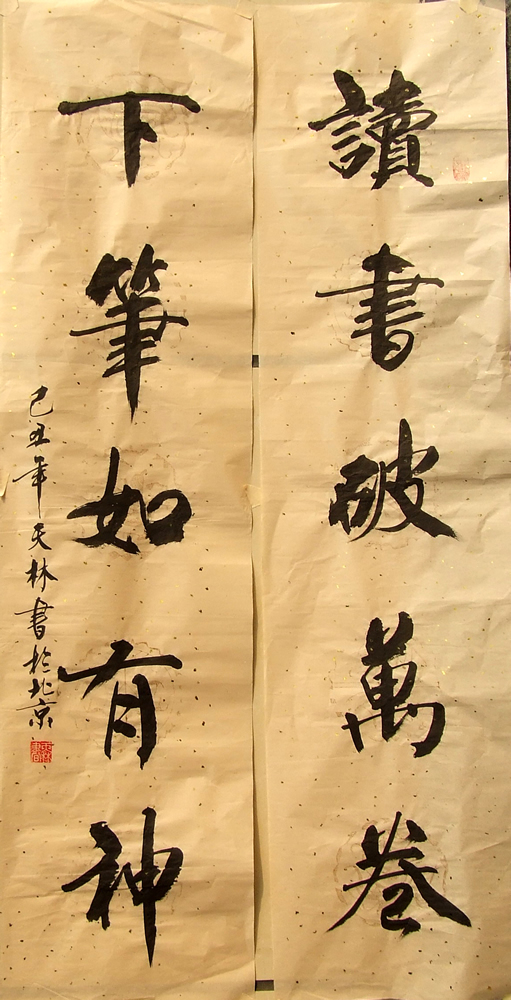 讀書破萬卷
下筆如有神
己丑年天林書於北京